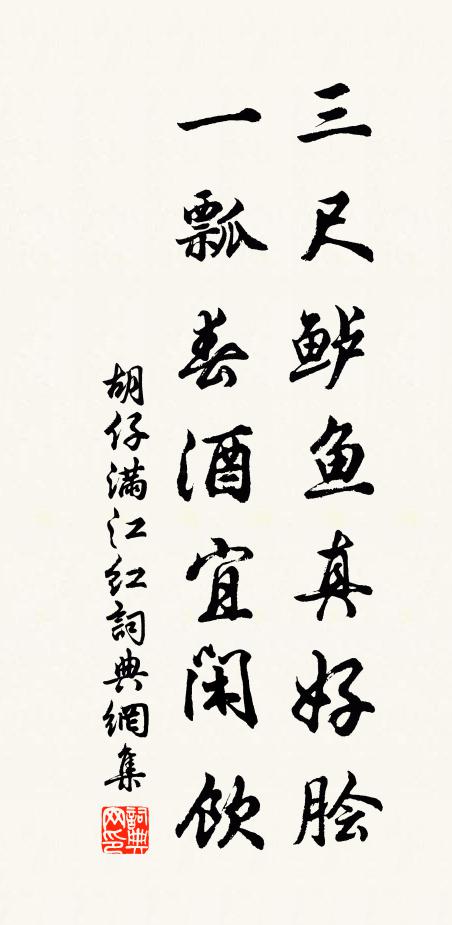 三尺鲈鱼真好脍
一瓢春酒宜闲饮
胡仔满江红詞典網集
詞典网印